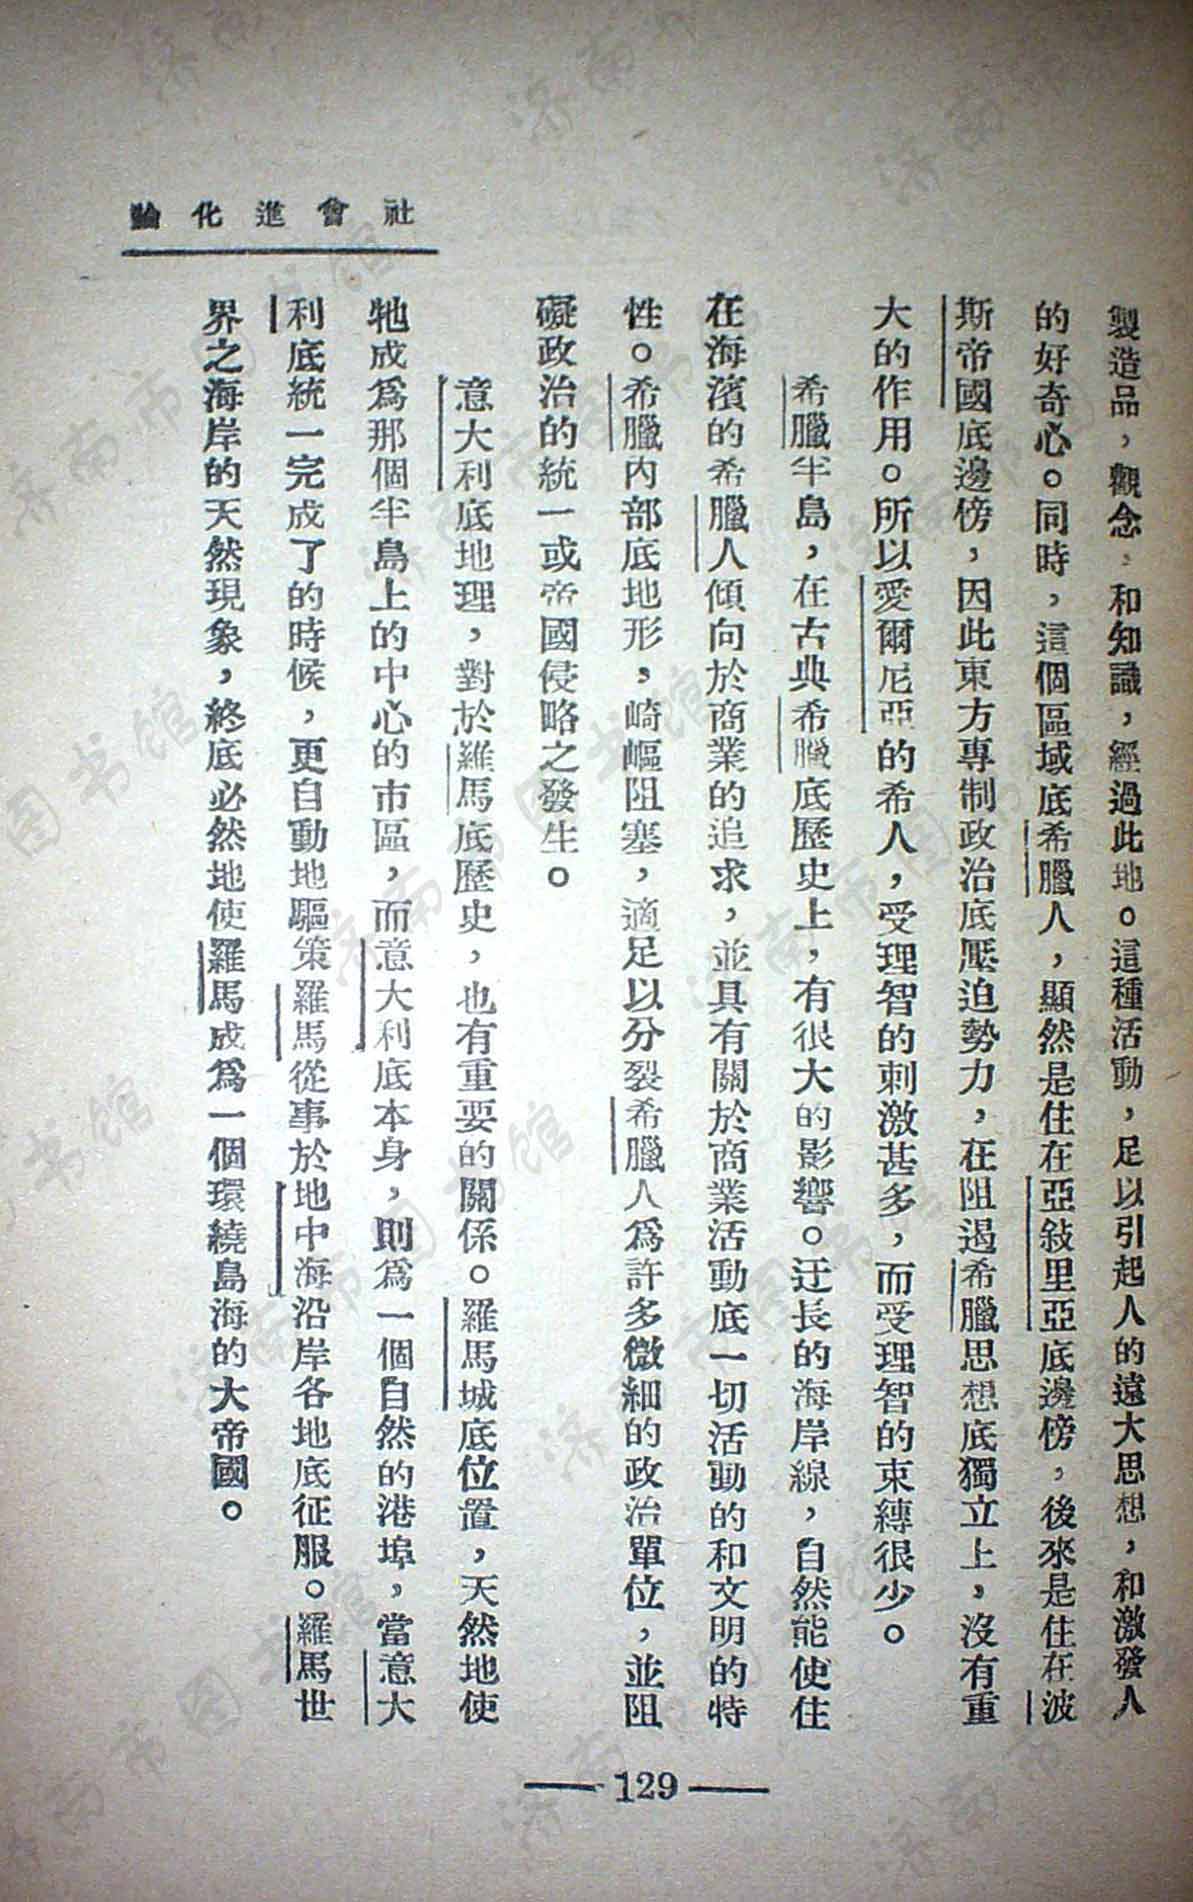 社會進化論
製造品，觀念，和知識，經過此地。這種活動，足以引起人的遠大思想，和激發人
的好奇心。同時，這個區域底希臘人，顯然是住在亞敍里亞底邊傍，後來是住在波
斯帝國底邊傍，因此東方專制政治底壓迫勢力，在阻遏希臘思想底獨立上，沒有重
大的作用。所以愛爾尼亞的希人，受理智的刺激甚多，而受理智的束縛很少。
希臘半島，在古典希臘底歷史上，有很大的影響。迂長的海岸線，自然能使住
在海濱的希臘人傾向於商業的追求，並具有關於商業活動底一切活動的和文明的特
性。希臘內部底地形，崎嶇阻塞，適足以分裂希臘人為許多微細的政治單位，並阻
礙政治的統一或帝國侵略之發生。
意大利底地理，對於羅馬底歷史，也有重要的關係。羅馬城底位置，天然地使
牠成為那個半島上的中心的市區，而意大利底本身，則為一個自然的港埠，當意大
利底統一完成了的時候，更自動地驅策羅馬從事於地中海沿岸各地底征服。羅馬世
界之海岸的天然現象，終底必然地使羅馬成為一個環繞島海的大帝國。
129
济南市图书馆